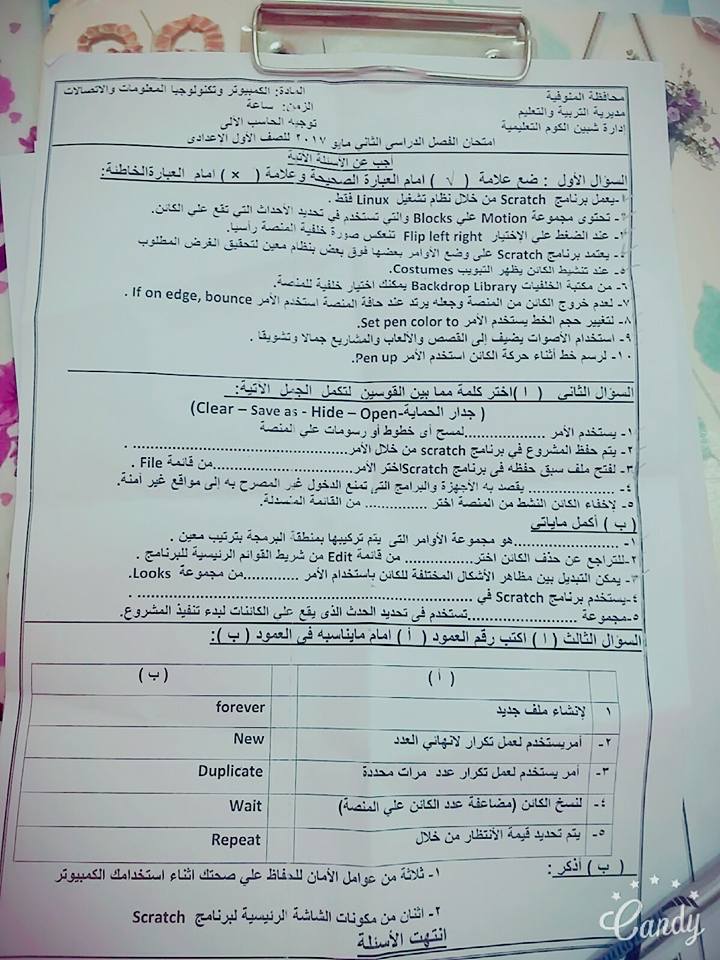 محافظة المنوفية
مديرية التربية والتعليم
إدارة شبين الكوم التعليمية
المادة: الكمبيوتر وتكنولوجيا المعلومات والاتصالات
الزمن: ساعة
توجيه الحاسب الآلى
امتحان الفصل الدراسى الثاني مايو ٢٠١٧ للصف الأول الاعدادى
أجب عن الأسئلة الآتية
السؤال الأول : ضع علامة ( √ ) امام العبارة الصحيحة وعلامة ( × ) امام العبارة الخاطئة:
١-يعمل برنامج Scratch من خلال نظام تشغيل Linux فقط .
٢- تحتوى مجموعة Motion علي Blocks والتي تستخدم في تحديد الأحداث التي تقع علي الكائن.
٣- عند الضغط علي الإختيار Flip left right تنعكس صورة خلفية المنصة رأسيا.
٤- يعتمد برنامج Scratch على وضع الأوامر بعضها فوق بعض بنظام معين لتحقيق الغرض المطلوب
٥- عند تنشيط الكائن يظهر التبويب Costumes.
٦- من مكتبة الخلفيات Backdrop Library يمكنك اختيار خلفية للمنصة.
٧- لعدم خروج الكائن من المنصة وجعله يرتد عند حافة المنصة استخدم الأمر If on edge, bounce .
٨- لتغيير حجم الخط يستخدم الأمر Set pen color to.
٩- استخدام الأصوات يضيف إلى القصص والألعاب والمشاريع جمالا وتشويقا .
١٠- لرسم خط أثناء حركة الكائن استخدم الأمر Pen up.
السؤال الثاني ( ا )اختر كلمة مما بين القوسين لتكمل الجمل الاتية:
( جدار الحماية-Clear – Save as - Hide – Open)
١- يستخدم الأمر ..................لمسح أى خطوط أو رسومات علي المنصة
٢- يتم حفظ المشروع في برنامج scratch من خلال الأمر.................................................. .
٣- لفتح ملف سبق حفظه فى برنامج Scratchاختر الأمر..............................من قائمة File .
٤- .................... يقصد به الأجهزة والبرامج التى تمنع الدخول غير المصرح به إلى مواقع غير آمنة.
٥- لإخفاء الكائن النشط من المنصة اختر .............. من القائمة المنسدلة.
( ب ) أكمل ماياتي
١- ........................هو مجموعة الأوامر التى يتم تركيبها بمنطقة البرمجة بترتيب معين .
٢-للتراجع عن حذف الكائن اختر.................. من قائمة Edit من شريط القوائم الرئيسية للبرنامج .
٣- يمكن التبديل بين مظاهر الأشكال المختلفة للكائن باستخدام الأمر ............من مجموعة Looks.
٤-يستخدم برنامج Scratch في ............................................................ .
٥-مجموعة ........................تستخدم فى تحديد الحدث الذى يقع علي الكائنات لبدء تنفيذ المشروع.
السؤال الثالث ( ا ) اكتب رقم العمود ( أ ) امام مايناسبه فى العمود ( ب ):
( أ ) ( ب )
١ لإنشاء ملف جديد forever
٢- أمريستخدم لعمل تكرار لانهائي العدد New
٣- أمر يستخدم لعمل تكرار عدد مرات محددة Duplicate
٤- لنسخ الكائن (مضاعفة عدد الكائن علي المنصة) Wait
٥- يتم تحديد قيمة الأنتظار من خلال Repeat
( ب ) أذكر : ١- ثلاثة من عوامل الأمان للحفاظ علي صحتك اثناء استخدامك الكمبيوتر
٢- اثنان من مكونات الشاشة الرئيسية لبرنامج Scratch
انتهت الأسئلة
Candy